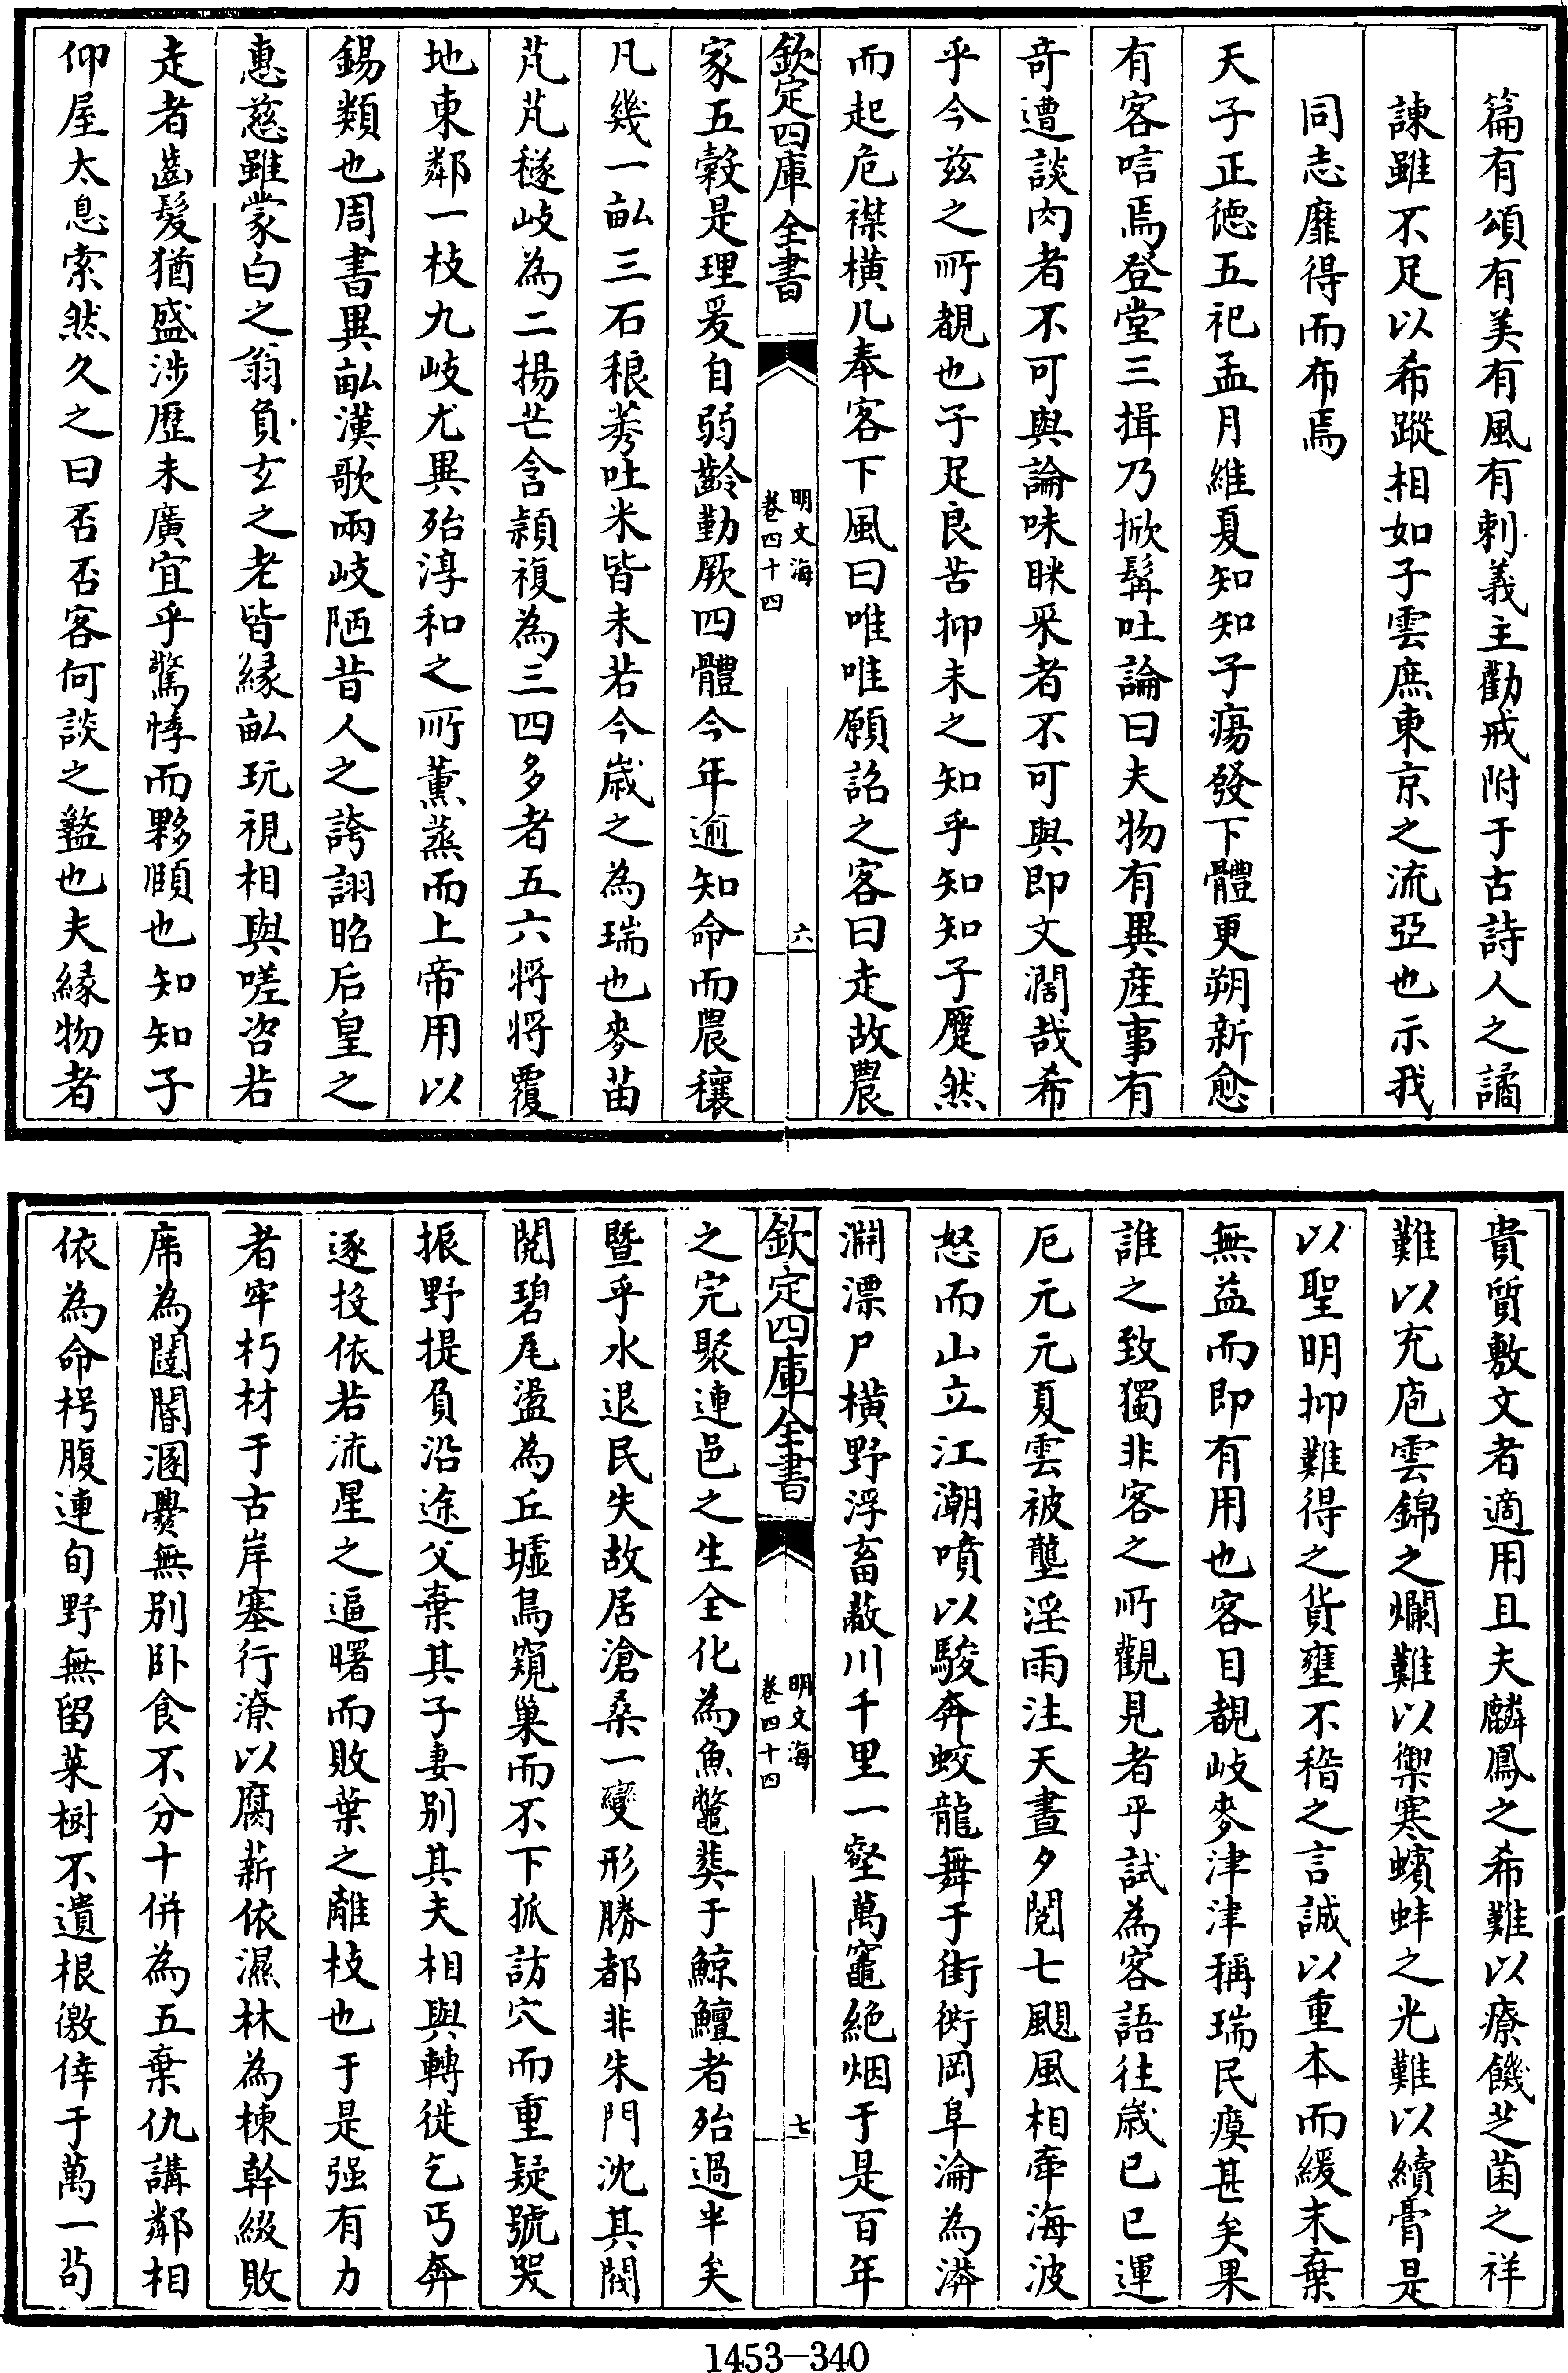 篇有頌有美有風有刺義主勸戒附于古詩人之譎
諫雖不足以希蹤相如子雲庶東京之流亞也示我
同志靡得而布焉
天子正徳五祀孟月維夏知知子瘍發下體更朔新愈
有客唁焉登堂三揖乃掀髯吐論曰夫物有異産事有
竒遭談肉者不可與論味眯采者不可與即文濶哉希
乎今兹之所覩也子足良苦抑未之知乎知知子蹙然
而起危襟橫几奉客下風曰唯唯願詔之客曰走故農
欽定四庫全書
明文海
卷四十四
六
家五穀是理爰自弱齡勤厥四體今年逾知命而農穰
凡幾一畝三石稂莠吐米皆未若今歳之為瑞也麥苗
芃芃穟岐為二揚芒含頴複為三四多者五六将将覆
地東鄰一枝九岐尤異殆淳和之所薰蒸而上帝用以
錫類也周書異畝漢歌兩岐陋昔人之誇詡昭后皇之
惠慈雖蒙白之翁負玄之老皆縁畝玩視相與嗟咨若
走者齒髮猶盛涉歴未廣宜乎驚悸而夥頤也知知子
仰屋太息索然久之曰否否客何談之盭也夫緣物者
貴質敷文者適用且夫麟鳳之希難以療饑芝菌之祥
難以充庖雲錦之爛難以禦寒蠙蚌之光難以續膏是
以聖明抑難得之貨壅不稽之言誠以重本而緩末棄
無益而即有用也客目覩岐麥津津稱瑞民瘼甚矣果
誰之致獨非客之所觀見者乎試為客語往歳己巳運
厄元元夏雲被壟淫雨注天晝夕閲七颶風相牽海波
怒而山立江潮噴以駿奔蛟龍舞于街衖岡阜淪為漭
淵漂尸橫野浮畜蔽川千里一壑萬竈絶烟于是百年
欽定四庫全書
明文海
卷四十四
七
之完聚連邑之生全化為魚鼈葬于鯨鱣者殆過半矣
暨乎水退民失故居滄桑一變形勝都非朱門沈其閥
閲碧瓦盪為丘墟鳥窺巢而不下狐訪穴而重疑號哭
振野提負沿途父棄其子妻别其夫相與轉徙乞丐奔
逐投依若流星之逼曙而敗葉之離枝也于是强有力
者牢朽材于古岸塞行潦以腐薪依濕林為棟幹綴敗
席為闥闇溷爨無别卧食不分十併為五棄仇講鄰相
依為命枵腹連旬野無留菜樹不遺根徼倖于萬一苟
1453-340